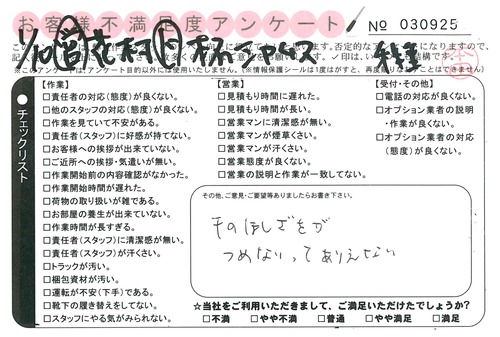 お客様不満足度アンケート
№ 030925
※このアンケートは、アンケート目的以外には使用いたしません。(※情報保護シールは1度はがすと、再度貼りなおすことはできません)
チェックリスト
【作業】
□責任者の対応(態度)が良くない。
□他のスタッフの対応(態度)が良くない。
□作業を見ていて不安がある。
□責任者(スタッフ)に好感が持てない。
□お客様への挨拶が出来ていない。
□ご近所への挨拶・気遣いが無い。
□作業開始前の内容確認がなかった。
□作業開始時間が遅れた。
□荷物の取り扱いが雑である。
□お部屋の養生が出来ていない。
□作業時間が長すぎる。
□責任者(スタッフ)に清潔感が無い。
□責任者(スタッフ)が汗くさい。
□トラックが汚い。
□梱包資材が汚い。
□運転が不安(下手)である。
□靴下の履き替えをしてない。
□スタッフにやる気がみられない。
【営業】
□見積もり時間に遅れた。
□見積もり時間が長い。
□営業マンに清潔感が無い。
□営業マンが煙草くさい。
□営業マンが汗くさい。
□営業態度が良くない。
□営業の説明と作業が一致してない。
【受付・その他】
□電話の対応が良くない。
□オプション業者の説明
・作業が良くない。
□オプション業者の対応
(態度)が良くない。
その他、ご意見・ご要望等ありましたらお書き下さい。
その ほしざをが
つめないって ありえない
☆当社をご利用いただきまして、ご満足いただけたでしょうか?
□不満 □やや不満 □普通 □やや満足 □満足